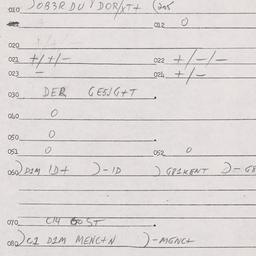 010 )OB3R DU DOR/YT+ (205
012 0
020
021 +/+/- 022 +/-/-
023 - 024 +/-
030 DER GESYG+T .
040 0
050 0
051 0 052 0
060 )D1M ID+ )-ID )GB1KENT )-GB
070 CI4 GOST .
080 )C1 D1M MENC+N )-MGNC+